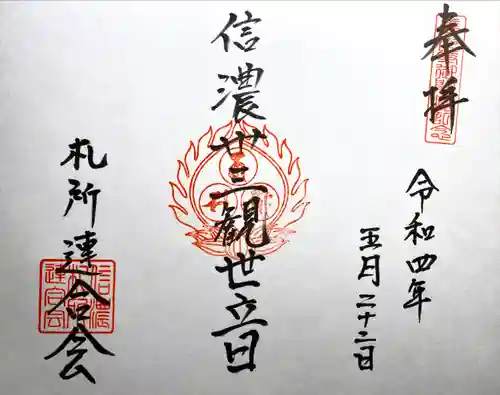 奉拝
令和四年
五月二十二日
信濃丗三観世音
札所連合会